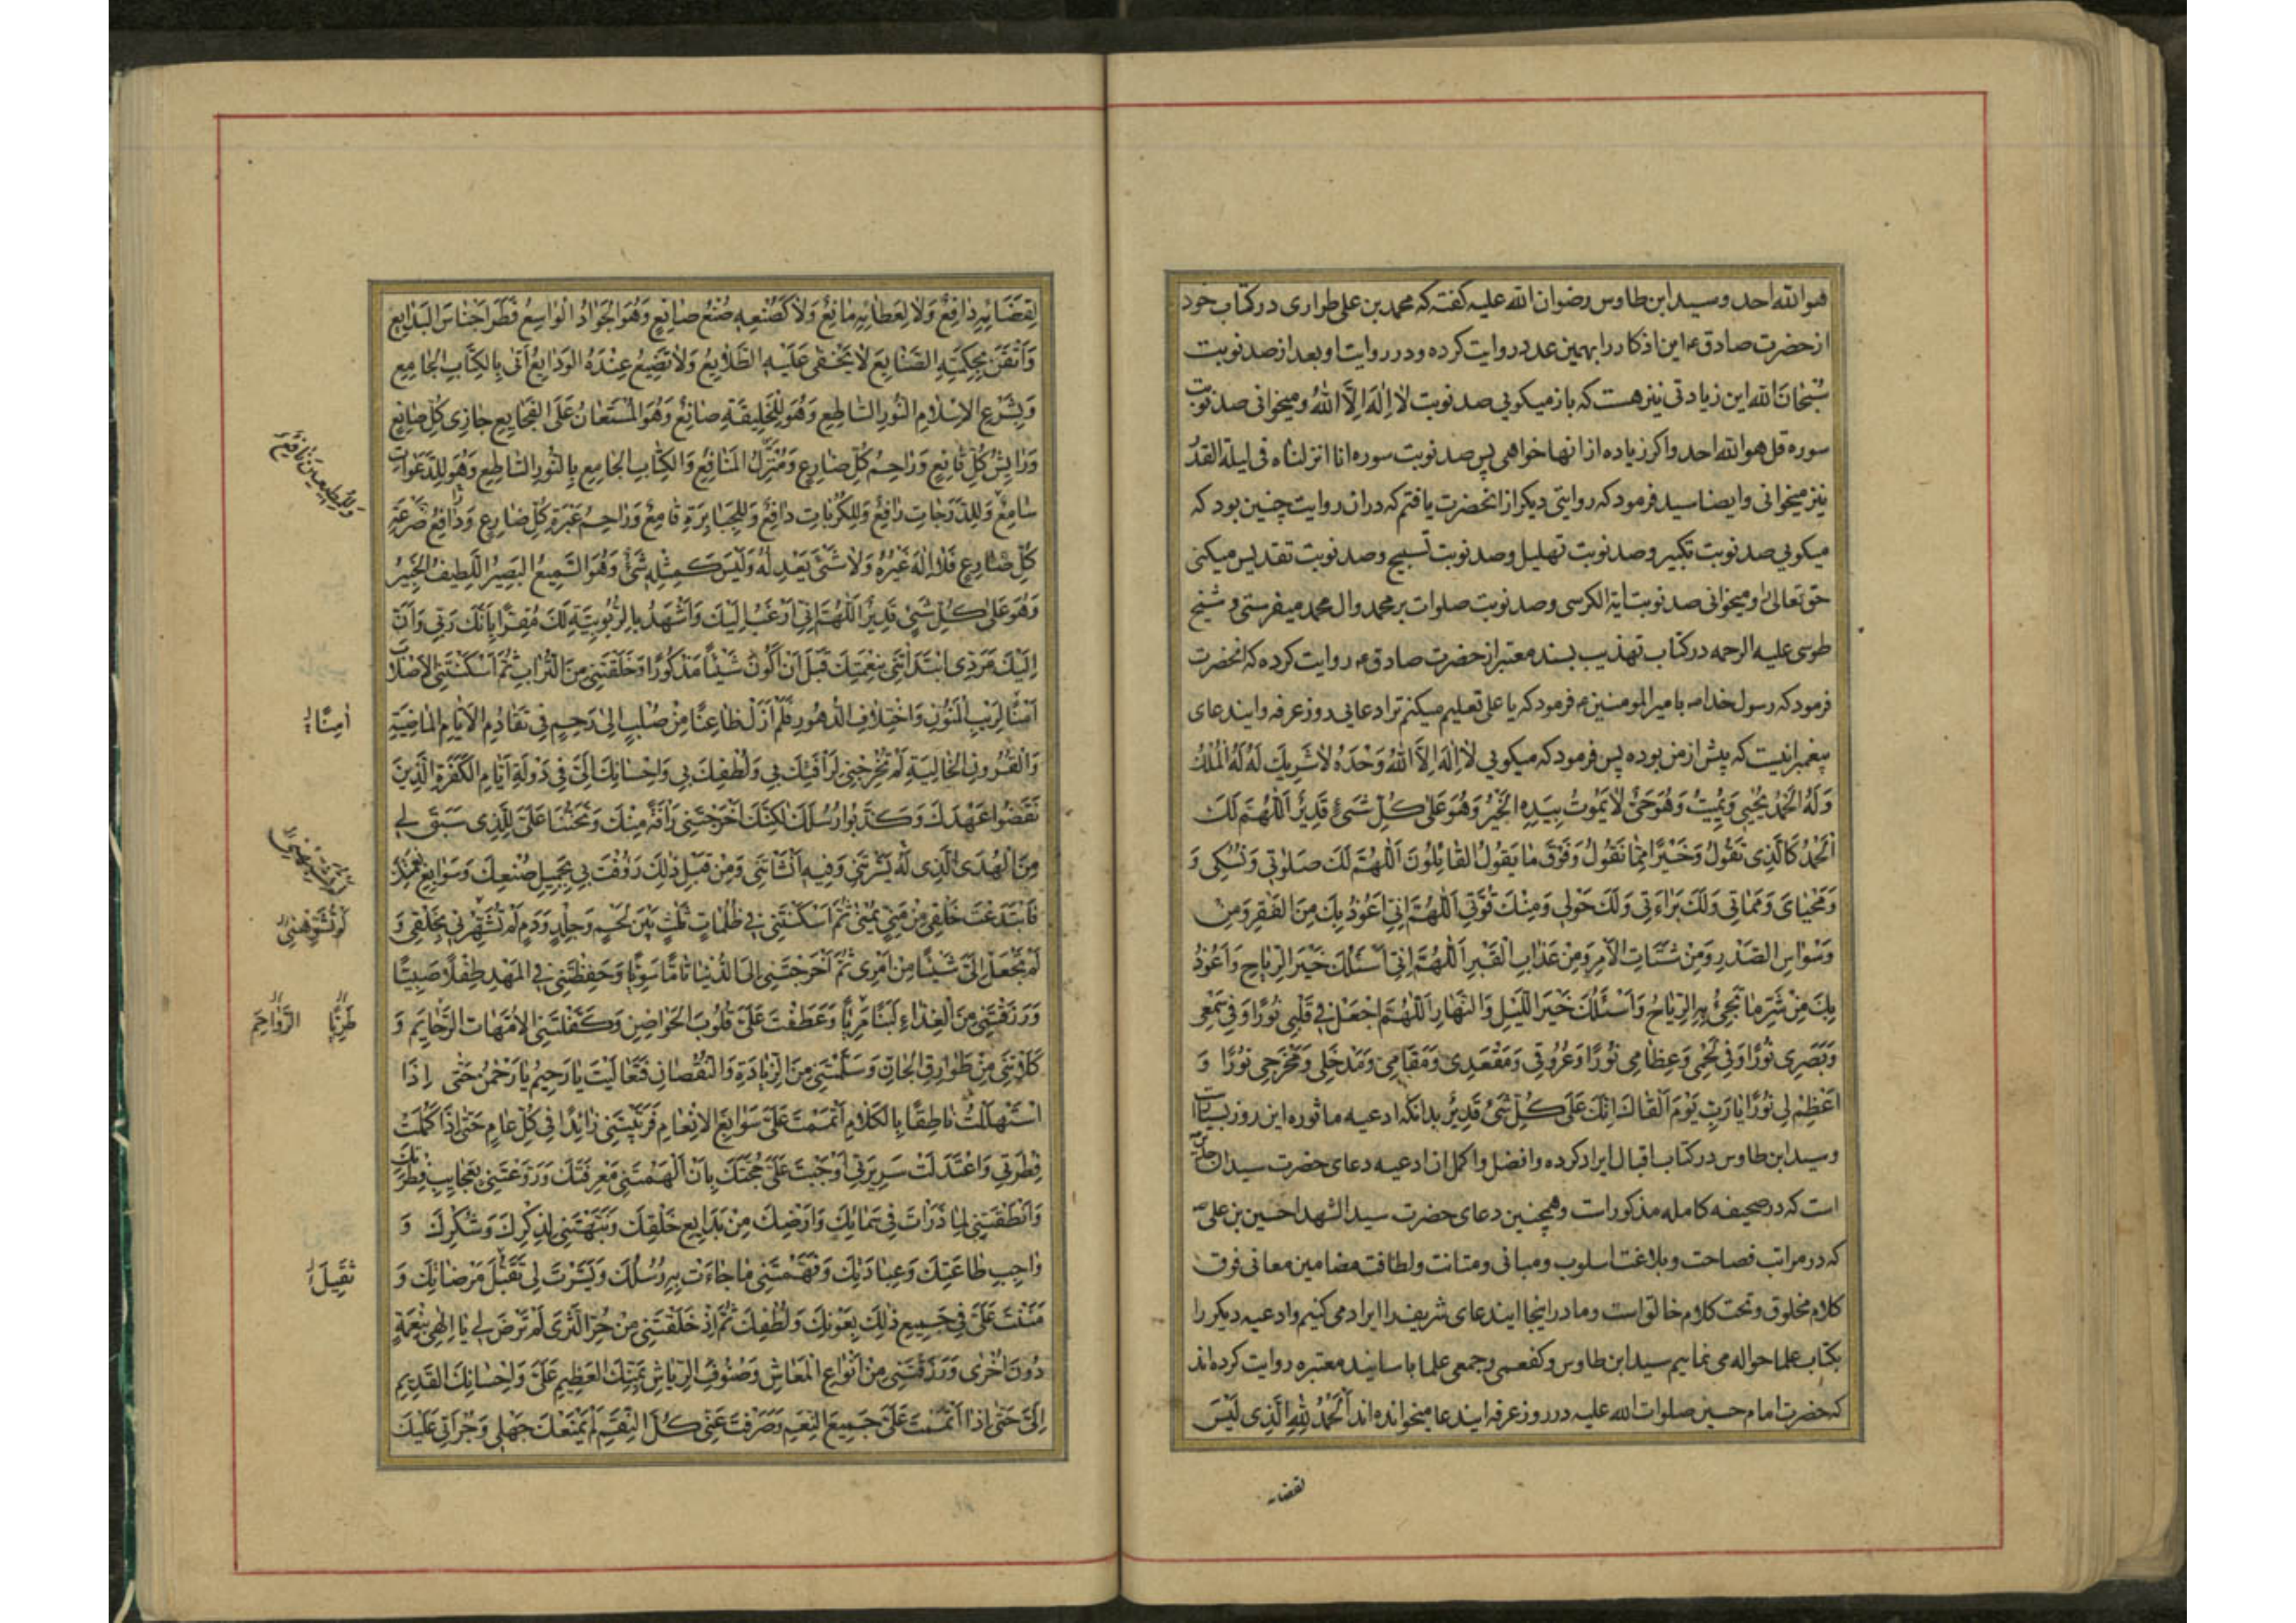 هو الله احد و سید ابن طاوس رضوان الله علیه کفته که محمد بن علی طرازی در کتاب خود
از حضرت صادق ع این اذکار را بهمین عدد روایت کرده و در روایت او بعد از صد نوبت
سُبْحٰانَ الله این زیادتی نیز هست که باز میکویی صد نوبت لٰا اِلٰهَ اِلَّا اللّٰهُ و میخوانی صد نوبت
سوره قل هو الله احد و اکر زیاده از انها خواهی پس صد نوبت سوره انا انزلناه فی لیلة القدر
نیز میخوانی و ایضا سید فرمود که روایتی دیکر از انحضرت یافتم که دران روایت چنین بود که
میکویی صد نوبت تکبیر و صد نوبت تهلیل و صد نوبت تسبیح و صد نوبت تقدیس میکنی
حق تعالی را و میخوانی صد نوبت ایة الکرسی و صد نوبت صلوات بر محمد و ال محمد میفرستی و شیخ
طوسی علیه الرحمه در کتاب تهذیب بسند معتبر از حضرت صادق ع روایت کرده که انحضرت
فرمود که رسول خدا ص بامیر المومنین ع فرمود که یا علی تعلیم میکنم ترا دعایی در روز عرفه و ایندعای
پیغمبرانیست که پیش از من بوده پس فرمود که میکویی لٰا اِلٰهَ اِلَّا اللّٰهُ وَحْدَهُ لٰا شَرِیكَ لَهُ لَهُ الْمُلْكُ
وَلَهُ الْحَمْدُ یُحْیِی وَیُمِیتُ وَهُوَ حَیٌّ لٰا یَمُوتُ بِیَدِهِ الْخَیْرُ وَهُوَ عَلٰی کُلِّ شَیْءٍ قَدِیرٌ اَللّٰهُمَّ لَكَ
الْحَمْدُ کَالَّذِی تَقُولُ وَخَیْرًا مِمّٰا نَقُولُ وَفَوْقَ مٰا یَقُولُ الْقٰائِلُونَ اَللّٰهُمَّ لَكَ صَلٰوتِی وَنُسُکِی وَ
وَمَحْیٰایَ وَمَمٰاتِی وَلَكَ بَرٰاءَتِی وَلَكَ حَوْلِی وَمِنْكَ قُوَّتِی اَللّٰهُمَّ اِنِّی اَعُوذُ بِكَ مِنَ الْفَقْرِ وَمِنْ
وَسْوٰاسِ الصَّدْرِ وَمِنْ شَتٰاتِ الْاَمْرِ وَمِنْ عَذٰابِ الْقَبْرِ اَللّٰهُمَّ اِنِّی اَسْئَلُكَ خَیْرَ الرِّیٰاحِ وَاَعُوذُ
بِكَ مِنْ شَرِّ مٰا تَجِیءُ بِهِ الرِّیٰاحُ وَاَسْئَلُكَ خَیْرَ اللَّیْلِ وَالنَّهٰارِ اَللّٰهُمَّ اجْعَلْ فِی قَلْبِی نُورًا وَفِی سَمْعِی
وَبَصَرِی نُورًا وَفِی لَحْمِی وَعِظٰامِی نُورًا وَعُرُوقِی وَمَقْعَدِی وَمَقٰامِی وَمَدْخَلِی وَمَخْرَجِی نُورًا وَ
اَعْظِمْ لِی نُورًا یٰا رَبِّ یَوْمَ اَلْقٰاكَ اِنَّكَ عَلٰی کُلِّ شَیْءٍ قَدِیرٌ بدانکه ادعیه ماثوره این روز بسیار است
و سید ابن طاوس در کتاب اقبال ایراد کرده و افضل و اکمل ان ادعیه دعای حضرت سید الساجدین
است که در صحیفه کامله مذکور است و همچنین دعای حضرت سید الشهدا حسین بن علی ع
که در مراتب فصاحت و بلاغت اسلوب و مبانی و متانت و لطافت مضامین معانی فوق
کلام مخلوق و تحت کلام خالق است و ما در اینجا ایندعای شریف را ایراد می کنیم و ادعیه دیکر را
بکتاب علما حواله می نماییم سید ابن طاوس و کفعمی و جمعی علما با سانید معتبره روایت کرده اند
که حضرت امام حسین صلوات الله علیه در روز عرفه ایندعا میخوانده اند اَلْحَمْدُ لِلّٰهِ الَّذِی لَیْسَ
لقضائه
لِقَضٰائِهِ دٰافِعٌ وَلٰا لِعَطٰائِهِ مٰانِعٌ وَلٰا کَصُنْعِهِ صُنْعُ صٰانِعٍ وَهُوَ الْجَوٰادُ الْوٰاسِعُ فَطَرَ اَجْنٰاسَ الْبَدٰایِعِ
وَاَتْقَنَ بِحِکْمَتِهِ الصَّنٰایِعَ لٰا یَخْفٰی عَلَیْهِ الطَّلٰایِعُ وَلٰا تَضِیعُ عِنْدَهُ الْوَدٰایِعُ اَتٰی بِالْکِتٰابِ الْجٰامِعِ
وَبِشَرْعِ الْاِسْلٰامِ النُّورِ السّٰاطِعِ وَهُوَ لِلْخَلِیقَةِ صٰانِعٌ وَهُوَ الْمُسْتَعٰانُ عَلَی الْفَجٰایِعِ جٰازِی کُلِّ صٰانِعٍ
وَرٰایِشُ کُلِّ قٰانِعٍ وَرٰاحِمُ کُلِّ ضٰارِعٍ وَمُنْزِلُ الْمَنٰافِعِ وَالْکِتٰابِ الْجٰامِعِ بِالنُّورِ السّٰاطِعِ وَهُوَ لِلدَّعَوٰاتِ
سٰامِعٌ وَلِلدَّرَجٰاتِ رٰافِعٌ وَلِلْکُرُبٰاتِ دٰافِعٌ وَلِلْجَبٰابِرَةِ قٰامِعٌ وَرٰاحِمُ عَبْرَةِ کُلِّ ضٰارِعٍ وَدٰافِعُ ضَرْعَةِ
کُلِّ ضٰارِعٍ فَلٰا اِلٰهَ غَیْرُهُ وَلٰا شَیْءَ یَعْدِلُهُ وَلَیْسَ کَمِثْلِهِ شَیْءٌ وَهُوَ السَّمِیعُ الْبَصِیرُ اللَّطِیفُ الْخَبِیرُ
وَهُوَ عَلٰی کُلِّ شَیْءٍ قَدِیرٌ اَللّٰهُمَّ اِنِّی اَرْغَبُ اِلَیْكَ وَاَشْهَدُ بِالرُّبُوبِیَّةِ لَكَ مُقِرًّا بِاَنَّكَ رَبِّی وَاَنَّ
اِلَیْكَ مَرَدِّی ابْتَدَاْتَنِی بِنِعْمَتِكَ قَبْلَ اَنْ اَکُونَ شَیْئًا مَذْکُورًا وَخَلَقْتَنِی مِنَ التُّرٰابِ ثُمَّ اَسْکَنْتَنِی الْاَصْلٰابَ
اٰمِنًا لِرَیْبِ الْمَنُونِ وَاخْتِلٰافِ الدُّهُورِ فَلَمْ اَزَلْ ظٰاعِنًا مِنْ صُلْبٍ اِلٰی رَحِمٍ فِی تَقٰادُمِ الْاَیّٰامِ الْمٰاضِیَةِ
وَالْقُرُونِ الْخٰالِیَةِ لَمْ تُخْرِجْنِی لِرَاْفَتِكَ بِی وَلُطْفِكَ بِی وَاِحْسٰانِكَ اِلَیَّ فِی دَوْلَةِ اَیّٰامِ الْکَفَرَةِ الَّذِینَ
نَقَضُوا عَهْدَكَ وَکَذَّبُوا رُسُلَكَ لٰکِنَّكَ اَخْرَجْتَنِی رَاْفَةً مِنْكَ وَتَحَنُّنًا عَلَیَّ لِلَّذِی سَبَقَ لِی
مِنَ الْهُدَی الَّذِی لَهُ یَسَّرْتَنِی وَفِیهِ اَنْشَاْتَنِی وَمِنْ قَبْلِ ذٰلِكَ رَؤُفْتَ بِی بِجَمِیلِ صُنْعِكَ وَسَوٰابِغِ نِعَمِكَ
فَابْتَدَعْتَ خَلْقِی مِنْ مَنِیٍّ یُمْنٰی ثُمَّ اَسْکَنْتَنِی فِی ظُلُمٰاتٍ ثَلٰثٍ بَیْنَ لَحْمٍ وَجِلْدٍ وَدَمٍ لَمْ تُشَهِّرْنِی بِخَلْقِی وَ
لَمْ تَجْعَلْ اِلَیَّ شَیْئًا مِنْ اَمْرِی ثُمَّ اَخْرَجْتَنِی اِلَی الدُّنْیٰا تٰامًّا سَوِیًّا وَحَفِظْتَنِی فِی الْمَهْدِ طِفْلًا صَبِیًّا
وَرَزَقْتَنِی مِنَ الْغِذٰاءِ لَبَنًا مَرِیًّا وَعَطَفْتَ عَلَیَّ قُلُوبَ الْحَوٰاضِنِ وَکَفَّلْتَنِی الْاُمَّهٰاتِ الرَّحٰایِمَ وَ
کَلَاْتَنِی مِنْ طَوٰارِقِ الْجٰانِّ وَسَلَّمْتَنِی مِنَ الزِّیٰادَةِ وَالنُّقْصٰانِ فَتَعٰالَیْتَ یٰا رَحِیمُ یٰا رَحْمٰنُ حَتّٰی اِذَا
اسْتَهْلَلْتُ نٰاطِقًا بِالْکَلٰامِ اَتْمَمْتَ عَلَیَّ سَوٰابِغَ الْاِنْعٰامِ فَرَبَّیْتَنِی زٰایِدًا فِی کُلِّ عٰامٍ حَتّٰی اِذٰا کَمُلَتْ
فِطْرَتِی وَاعْتَدَلَتْ سَرِیرَتِی اَوْجَبْتَ عَلَیَّ حُجَّتَكَ بِاَنْ اَلْهَمْتَنِی مَعْرِفَتَكَ وَرَوَّعْتَنِی بِعَجٰایِبِ فِطْرَتِكَ
وَاَنْطَقْتَنِی لِمٰا ذَرَاْتَ فِی سَمٰائِكَ وَاَرْضِكَ مِنْ بَدٰایِعِ خَلْقِكَ وَنَبَّهْتَنِی لِذِکْرِكَ وَشُکْرِكَ وَ
وٰاجِبِ طٰاعَتِكَ وَعِبٰادَتِكَ وَفَهَّمْتَنِی مٰا جٰاءَتْ بِهِ رُسُلُكَ وَیَسَّرْتَ لِی تَقَبُّلَ مَرْضٰاتِكَ وَ
مَنَنْتَ عَلَیَّ فِی جَمِیعِ ذٰلِكَ بِعَوْنِكَ وَلُطْفِكَ ثُمَّ اِذْ خَلَقْتَنِی مِنْ حُرِّ الثَّرٰی لَمْ تَرْضَ لِی یٰا اِلٰهِی بِنِعْمَةٍ
دُونَ اُخْرٰی وَرَزَقْتَنِی مِنْ اَنْوٰاعِ الْمَعٰاشِ وَصُنُوفِ الرِّیٰاشِ بِمَنِّكَ الْعَظِیمِ عَلَیَّ وَاِحْسٰانِكَ الْقَدِیمِ
اِلَیَّ حَتّٰی اِذٰا اَتْمَمْتَ عَلَیَّ جَمِیعَ النِّعَمِ وَصَرَفْتَ عَنِّی کُلَّ النِّقَمِ لَمْ یَمْنَعْكَ جَهْلِی وَجُرْاَتِی عَلَیْكَ
وَلِلْمُطِیعِینَ نٰافِعٌ
اٰمِنًا
لَمْ تُشَوِّهْنِی
طَرِیًّا
الرَّوٰاحِمَ